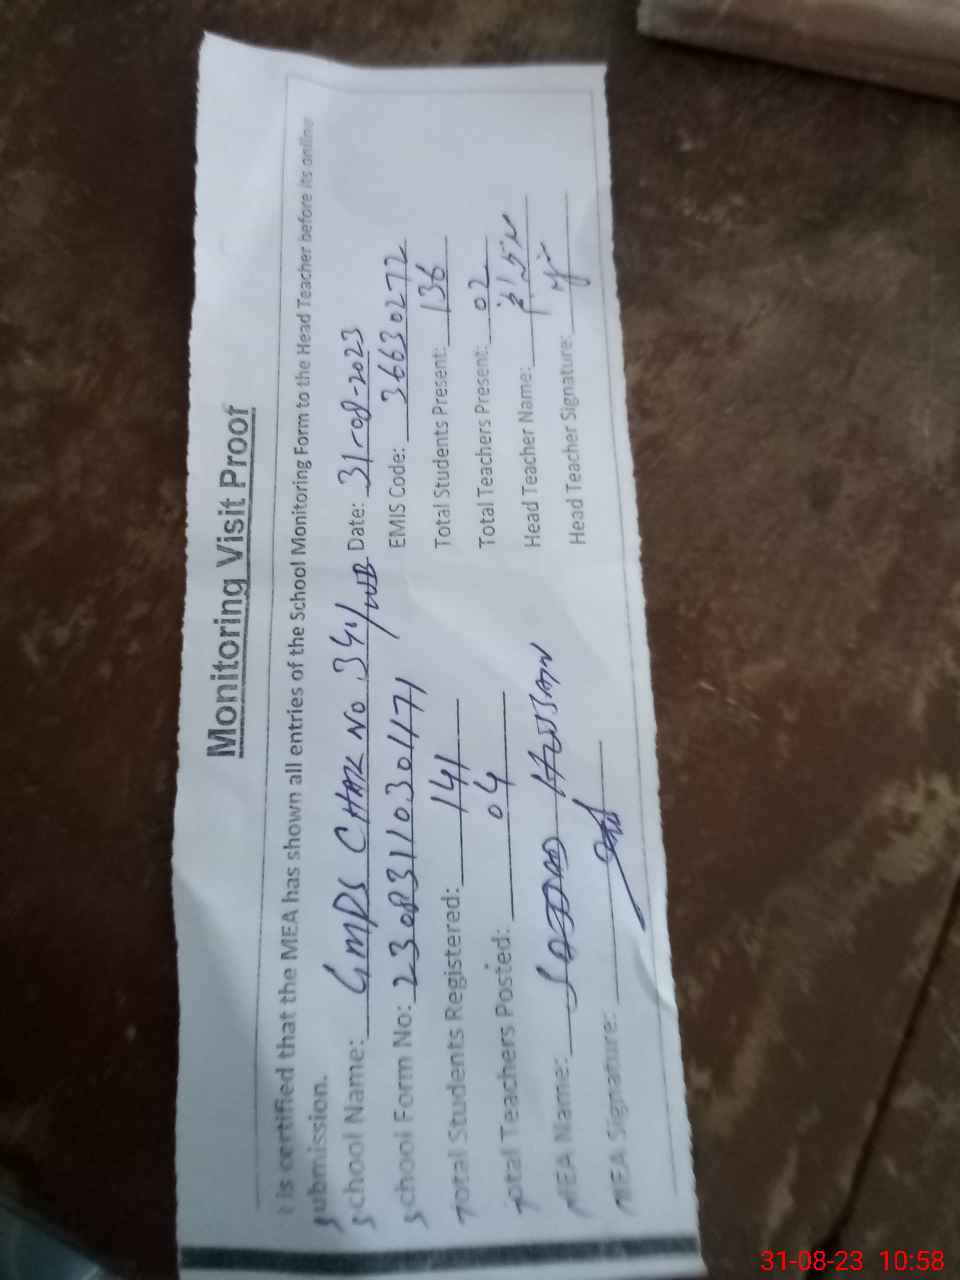 Monitoring Visit Proof
t is certified that the MEA has shown all entries of the School Monitoring Form to the Head Teacher before its online
submission.
School Name: GMPS CHAK No. 341/WB Date: 31-08-2023
School Form No: 230831103 EMIS Code: 36630272
Total Students Registered: 141 Total Students Present: 136
Total Teachers Posted: 04 Total Teachers Present: 02
MEA Name: Hassan Head Teacher Name:
MEA Signature: Head Teacher Signature:
31-08-23 10:58